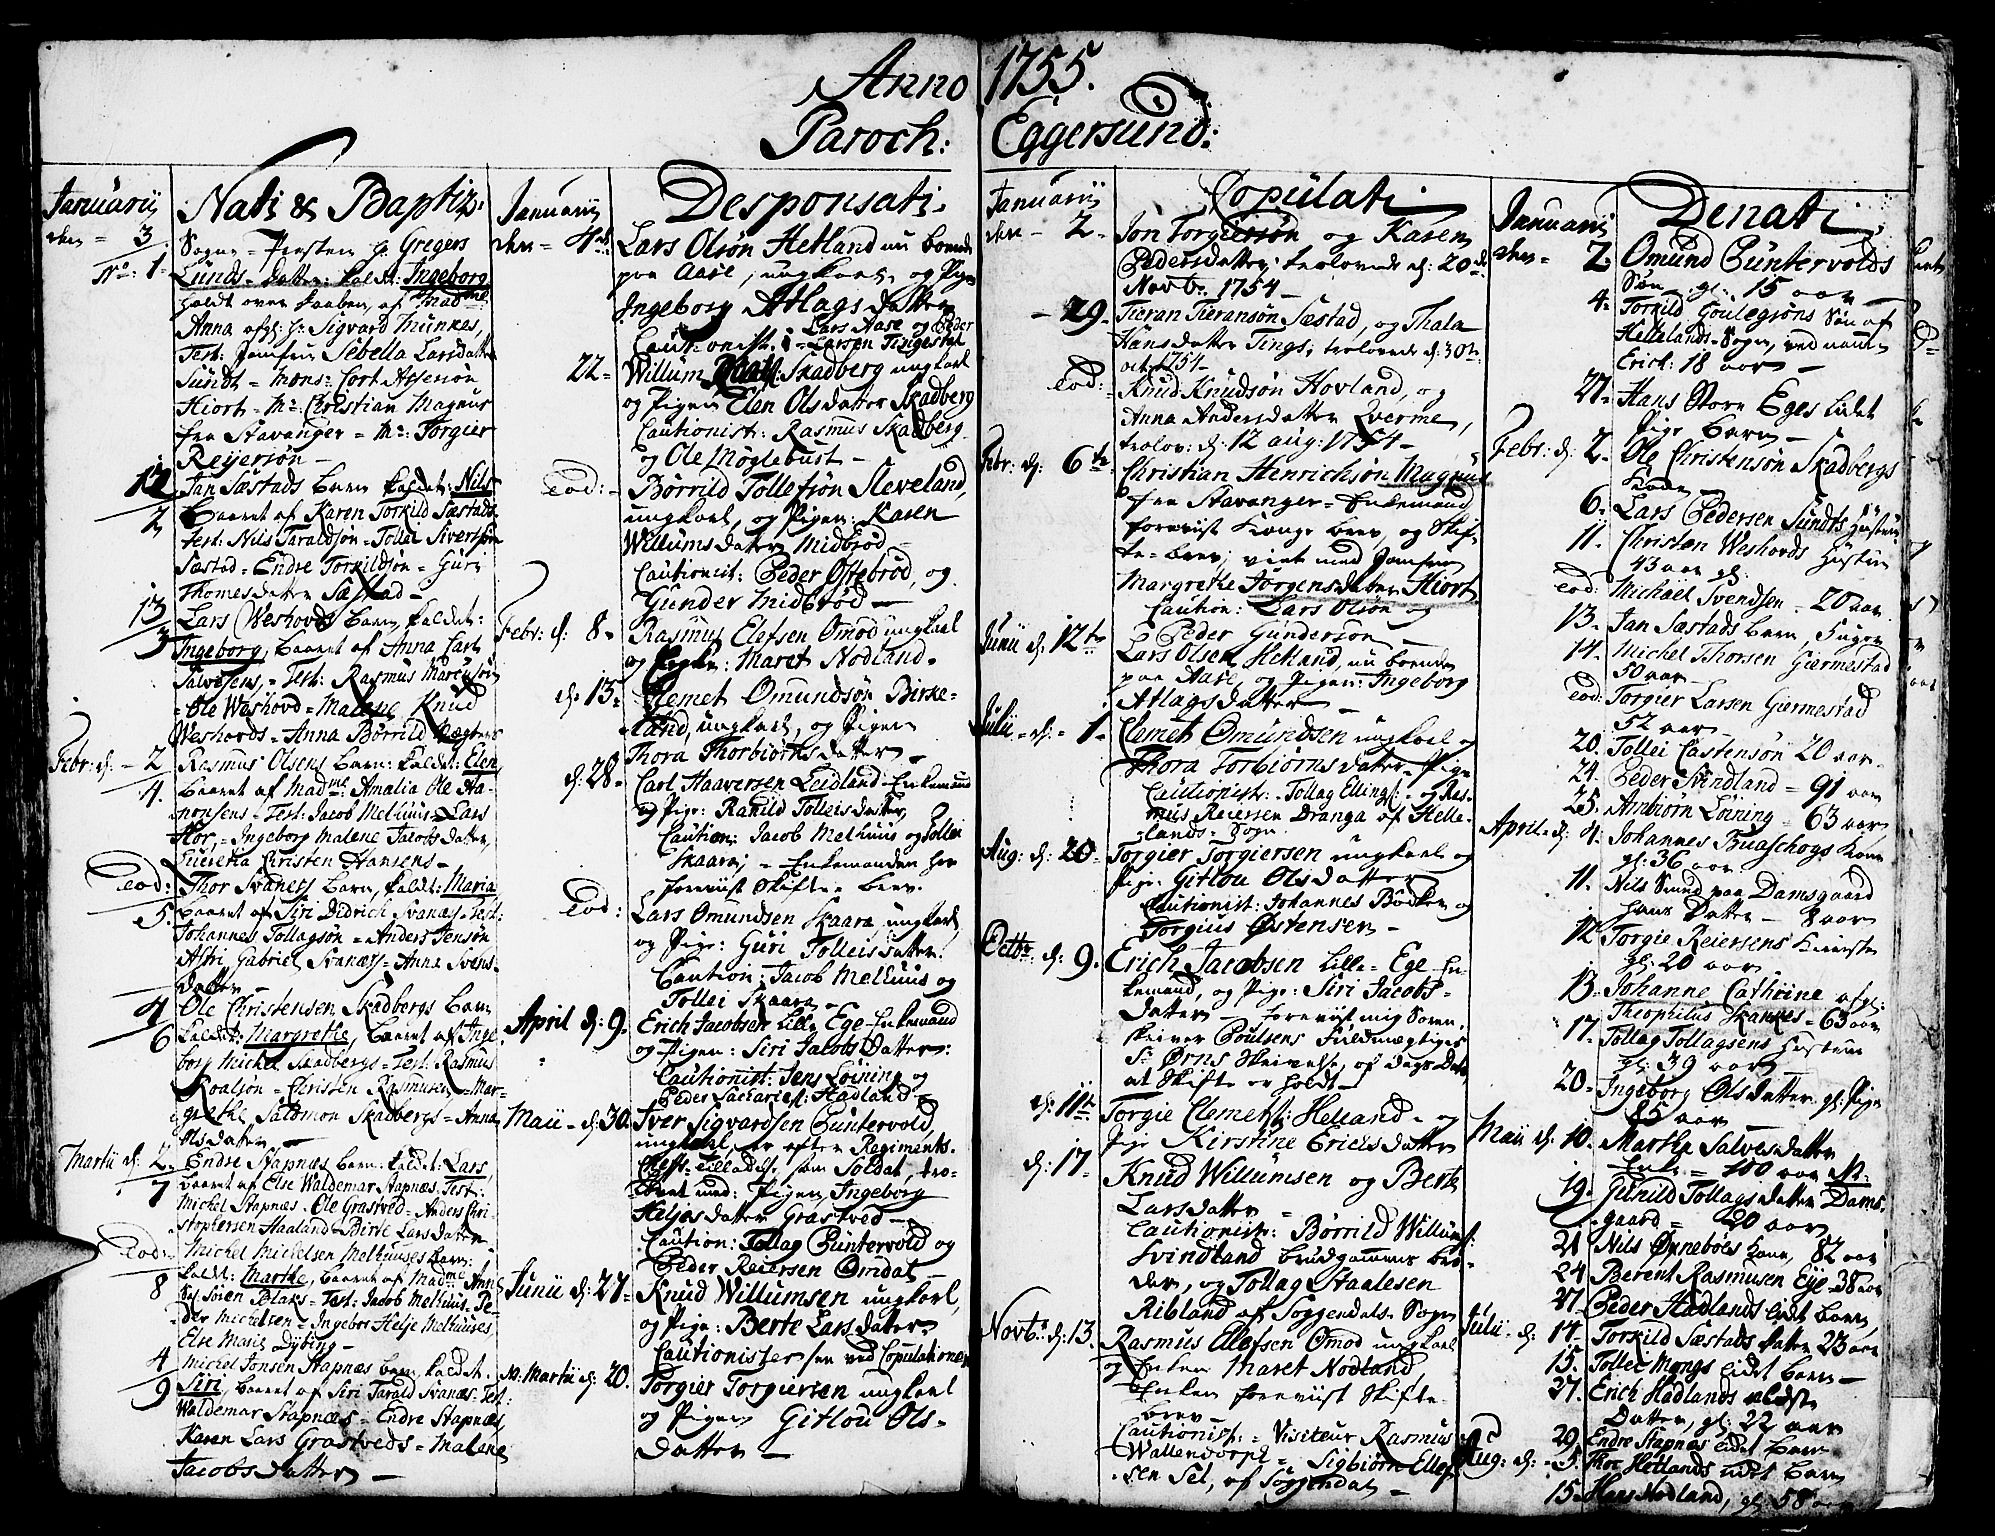 Anno 1755.
Paroch: Eggersund:
Januarii
den = 3
No: 1.
Nati & Baptiz:
Sogne-Præsten hr. Gregers
Lunds datter kaldt: Ingeborg
holdt over Daaben, af Madme
Anna afgl: hr. Sigvard Munkes,
Test: Jomfru Sebella Larsdatter
Sundt = Mons: Cort Assersøn
Hiort = Mr: Christian Magnus
fra Stavanger = Mr: Torgier
Reijersøn —
12
2
Jan Sæstads Barn kaldet: Nils
baaret af Karen Torkild Sæstads
Test: Nils Taraldsøn = Tollef Sivertsøn
Sæstad = Endre Torkildsøn = Guri
Thomesdatter Sæstad —
13
3
Lars Weshovds Barn kaldet:
Ingeborg, baaret af Anna Carl
Salvesens, = Test: Rasmus
= Ole Weshovd = Malene Knud
Weshovds = Anna Børrild
Febr: d: - 2
4.
Rasmus Olsens Barn: kaldet: Elen
baaret af Madme: Amalia Ole Ha-
nonsens = Test: Jacob Melhuus = Lars
Flor, = Ingeborg Malene Jacobs datter,
Lucretia Christen Hansens —
Eod:
5.
Thor Svanes Barn, kaldet: Maria
baaret af Siri Didrich Svanæs = Test:
Johannes Tollagsøn = Anders Jensøn
Astri Gabriel Svanæs = Anna Svens-
datter
4
6
Ole Christensen Skadbergs Barn
kaldet: Margrethe, baaret af Inge-
borg Michel Skadbergs = Test: Rasmus
Roalsøn = Christen Rasmusen = Mar-
grethe Salomon Skadbergs = Anna
Olsdatter —
Martii d: 2.
7
Endre Stapnæs Barn: kaldet: Lars,
baaret af Else Waldemar Stapnæs. Test:
Michel Stapnæs. Ole Grastved = Anders Chri-
stophersen Haaland = Birte Lars datter —
Eod:
8
Michel Michelsen Melhuuses Barn:
kaldt: Marthe, baaret af Madme Anna
Sl: Søren Blaks = Test: Jacob Melhuus. Pe-
der Michelsen = Ingebor Helje Melhuuses
Else Marie Dybing —
4
9
Michel Jonsen Stapnæs Barn kaldet.
Siri, baaret af Siri Tarald Svanæs = Test:
Waldemar Stapnæs = Endre Stapnæs
Karen Lars Grastveds = Malene
Jacobs datter —
Januarii
den =
Desponsati.
Lars Olsøn Hetland nu boende
paa Aase, ungkarl, og Pige
Ingeborg Atlags datter
Cautionist: Lars Aase og Peder
Larsen Tingestal
22 =
Willum Skadberg ungkarl
og Pigen Elen Olsdatter Skadberg
Cautionist: Rasmus Skadberg
og Ole Møglebust —
Eod: -
Børrild Tollefsøn Sleveland,
ungkarl, og Pigen: Karen
Willums datter Midbrød —
Cautionist: Peder Østebrød, og
Gunder Midbrød —
Febr: d: 8 =
Rasmus Elefsen Omod ungkarl
og Enke: Maret Nodland.
d: 13.
Clemet Omundsøn Birke-
land, ungkarl, og Pigen
Thora Thorbiørns datter —
d: 28 =
Carl Haaversen Leidland = Enkemand
og Pige: Ranild Tolleis datter,
Caution: Jacob Melhuus og Tollei
Skaara; = Enkemanden har
foreviist Skifte-brev.
Eod:
Lars Omundsen Skaara, ungkarl,
og Pige: Guri Tolleis datter.
Caution: Jacob Melhuus og
Tollei Skaara —
April d: 9.
Erich Jacobsen Lille Ege Enkemand
og Pigen: Siri Jacobs Datter:
Cautionist: Jens Løining og
Peder Sacariest: Hadland —
Maii = d: 30.
Iver Sigvardsen Puntervold,
ungkarl, er efter Regiments-
Chefs tilladelse som Soldat, tro-
lovet med: Pigen, Ingeborg
Heljes datter Grastved —
Caution: Tollag Puntervold og
Peder Reiersen Omdal —
Junii d: 27 =
Knud Willumsen ungkarl,
og Pige: Berte Lars datter
Cautionister see ved Copulationen
Martii d: 20.
Torgier Torgiersen ungkarl
og Pigen Gitlou Ols-
datter —
Januarii
den - 2 -
Copulati
Jon Torgiersøn og Karen
Pedersdatter, trolovede d: 20 de
Novbr. 1754 —
- 29.
Tieran Tieransøn Sæstad, og Thala
Hans datter Tings, trolovede d: 30te
oct. 1754 —
Eod:
Knud Knudsøn Hovland, og
Anna Andersdatter Lverme,
trolov: d: 12 aug: 1754 —
Febr: d: 6te
Christian Henrichsøn Magnus
fra Stavanger = Enkemand
foreviist Konge brev, og Skif-
te-brev; viet med Jomfru
Margrethe Jørgensdatter Hiort.
Caution: Lars Olsøn og
Peder Gundersøn —
Junii d. 12te
Lars Olsen Hetland, nu boende
paa Aase, og Pigen: Ingeborg
Atlags datter —
Julii = d: = 1 -
Clemet Omundsen ungkarl og
Thora Torbiørns datter = Pige
Cautionist: Tollag Elling og Ras-
mus Reiersen Dranga af Helle-
lands-Sogn
Aug: d: 20.
Torgier Torgiersen ungkarl og
Pige: Gitlou Olsdatter
Cautionist: Johannes Bødker og
Torgius Østensen —
Octbr: d: 9.
Erich Jacobsen Lille = Ege En-
kemand, og Pige: Siri Jacobs-
datter — foreviist mig Soren-
skriver Poulsens Fuldmægtiges
Sr Ørns Skrivelse, af dags Dato,
at Skifte er holdt —
d: 11te
Torgie Clemest: Helland = og
Pige Kirstine Erichs datter
d: 17.
Knud Willumsen og Berte
Larsdatter —
Cautionist: Børrild Willums:
Svindland brudgommens bro-
der, og Tollag Staalesen
Ribland af Soggendals-Sogn
Novbr: d: 13.
Rasmus Ellefsen Omod ungkarl
og Enken Maret Nodland,
Enken foreviist Skifte-
brev —
Cautionist: = Visiteur Rasmus
Wallendorph = Sigbiørn Ellef-
sen Sel, af Soggendal —
Januarii
den =
Denati
2.
Omund Puntervolds
Søn gl: 15 aar —
4.
Torkild Goulegsøns Søn af
Hellelands-Sogn, ved navn
Erich: 18 aar —
27.
Hans Store Eges lidet
Pige barn —
Febr: d: 2.
Ole Christensøn Skadbergs
6.
Lars Pedersen Sundts Hustru
11.
Christen Weshovds Hustru
43 aar gl:
eod:
Michael Svendsen = 20 aar
13.
Jan Sæstads barn,
14.
Michel Thorsen Giermestad
50 aar —
eod:
Torgier Larsen Giermestad
52 aar —
20.
Tollei Carstensøn 20 aar —
24.
Peder Svindland = 91 aar
25.
Anbiørn Løining = 63 aar
April d: 4.
Johannes Buaschogs Kone
gl: 36 aar
11.
Nils Svind paa Damsgaard
hans Datter — aar
12
Torgie Reiersens
gl: 20 aar
13.
Johanne Cathrine afgl:
Theophilus Skankes = 63 aar
17.
Tollag Tollagsens Hustru
gl: 39 aar —
20.
Ingeborg Olsdatter gl: Pige
85 aar
Maii d: 10.
Marthe Salvesdatter
Enke = 100 aar
19.
Gunild Tollags datter Dams-
gaard = 20 aar
21
Nils Øynebøes Kone, 82 aar
24
Berent Rasmusen Eye 38 aar
27
Peder Hadlands lidet barn,
Julii = d: 14.
Torkild Sæstads datter 23 aar
15.
Tollei Mongs lidet barn —
27.
Erich Hadlands ældste
Datter, gl: 22 aar
29.
Endre Stapnæs lidet barn
Aug: d: - 5.
Thor Hetlands lidet barn
15.
Hans Nodland, gl: 58 aar